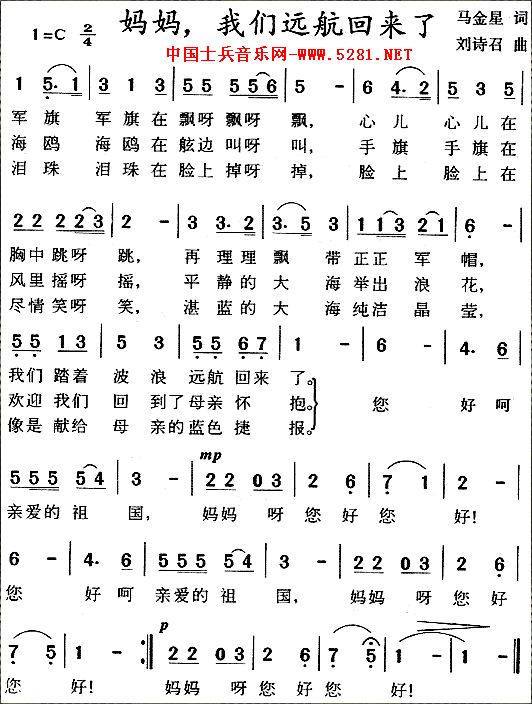 妈妈，我们远航回来了
马金星 词
1=C 2/4
刘诗召 曲
中国士兵音乐网-www.5281.NET
1 5·1 | 3 1 3 | 5 5 5 5 6 | 5 - | 6 4·2 | 5 3 5 |
军旗 军旗在飘呀飘呀 飘， 心儿 心儿在
海鸥 海鸥在舷边叫呀 叫， 手旗 手旗在
泪珠 泪珠在脸上掉呀 掉， 脸上 脸上在
2 2 2 2 3 | 2 - | 3 3·2 | 3·5 | 1 1 3 2 1 | 6 - |
胸中跳呀 跳， 再 理理飘 带正正 军 帽，
风里摇呀 摇， 平 静的大 海举出 浪 花，
尽情笑呀 笑， 湛 蓝的大 海纯洁 晶 莹，
5 5 1 3 | 5 3 | 5 5 6 7 | 1 - | 6 - | 4· 6 |
我们 踏着 波 浪 远航 回来 了。
欢迎 我们 回 到了母亲 怀 抱。 您 好呵
像是 献给 母 亲的蓝色 捷 报。
mp
5 5 5 5 4 | 3 - | 2 2 0 3 | 2 6 | 7 1 | 2 - |
亲爱的 祖 国， 妈妈 呀 您 好 您 好！
6 - | 4· 6 | 5 5 5 5 4 | 3 - | 2 2 0 3 | 2 6 |
您 好 呵 亲爱的 祖 国， 妈妈 呀 您 好
p
7 5 | 1 - :‖ 2 2 0 3 | 2 6 | 7 5 | 1 - | 1 - ‖
您 好！ 妈妈 呀 您 好 您 好！